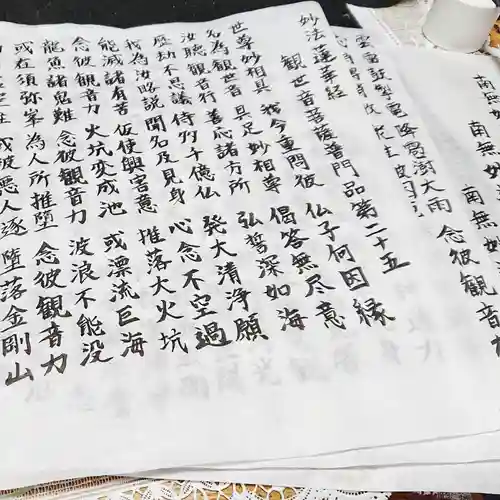 妙法蓮華経
觀世音菩薩普門品第二十五
世尊妙相具 我今重問彼 仏子何因縁
名為觀世音 具足妙相尊 偈答無尽意
汝聽觀音行 善応諸方所 弘誓深如海
歴劫不思議 侍多千億仏 発大清浄願
我為汝略説 聞名及見身 心念不空過
能滅諸有苦 仮使興害意 推落大火坑
念彼觀音力 火坑変成池 或漂流巨海
龍魚諸鬼難 念彼觀音力 波浪不能没
或在須弥峯 為人所推墮 念彼觀音力
或被悪人逐 墮落金剛山
雲雷鼓掣電 降雹澍大雨 念彼觀音力
南無妙 南無妙 南無妙